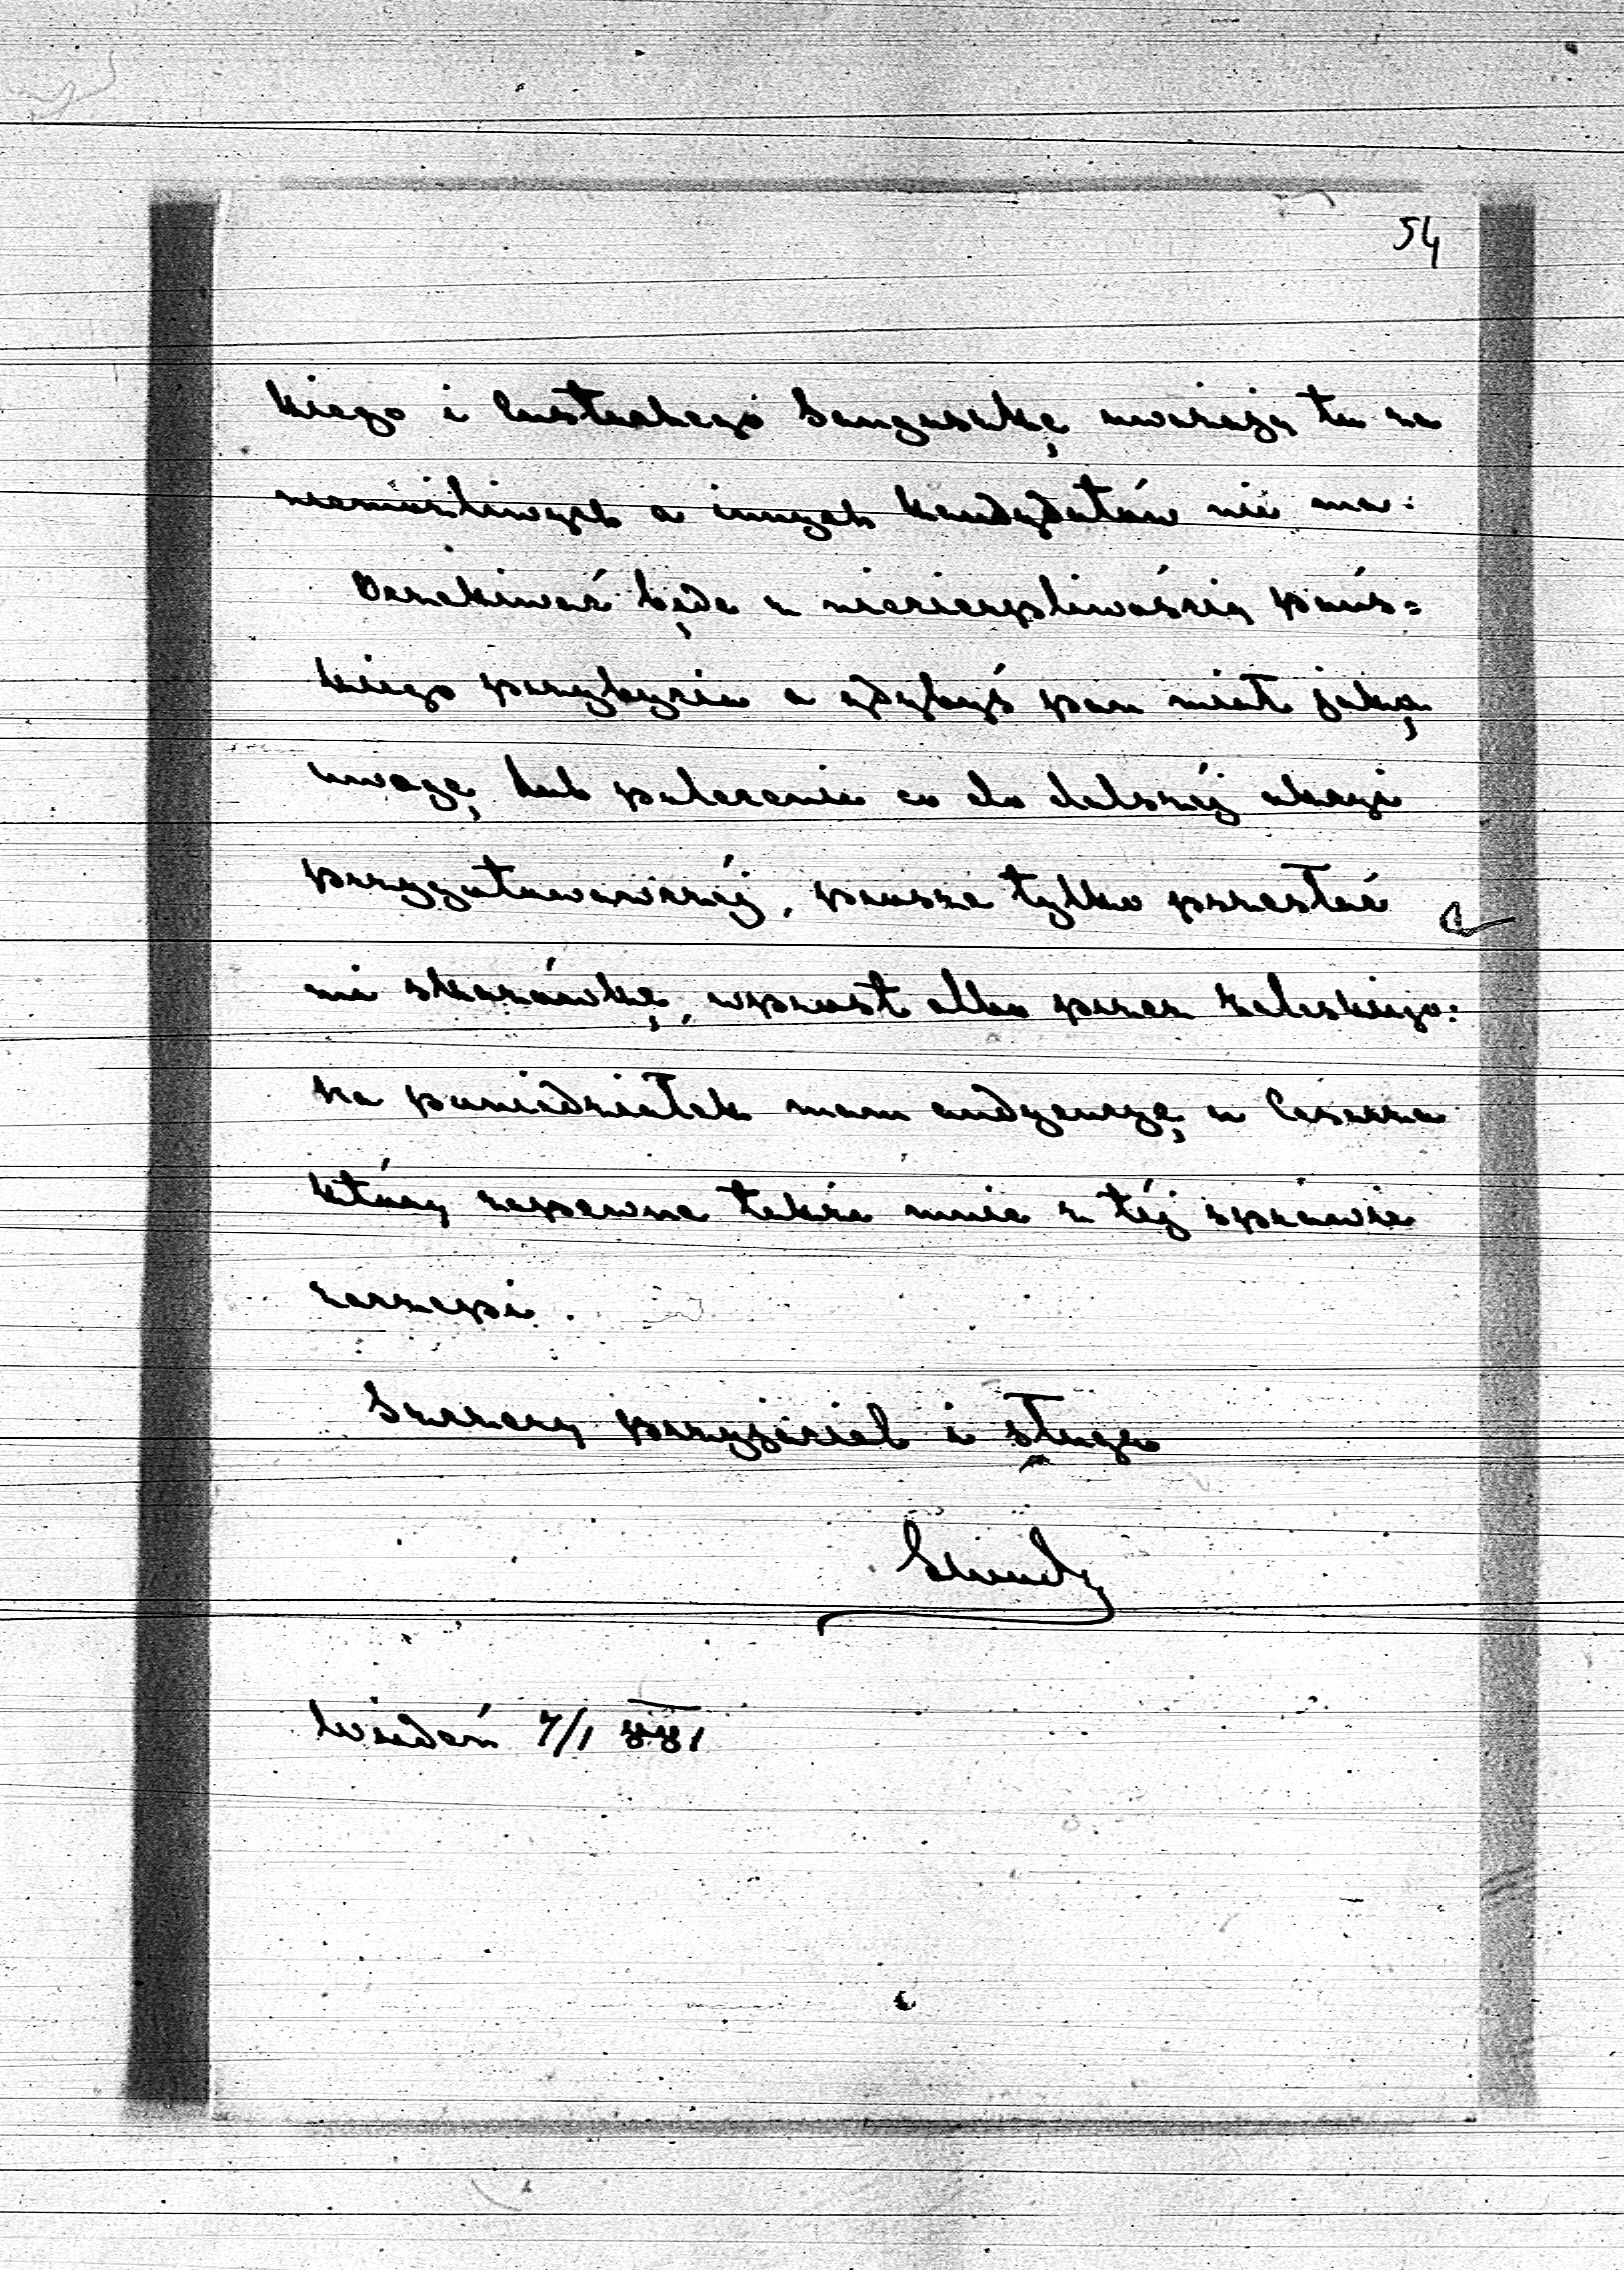 54
kiego i Eustachego Sanguszkę uważają tu za
niemożliwych a innych kandydatów nie ma.
Oczekiwać będę z niecierpliwością pańs=
kiego przybycia a gdybyś pan miał jaką
uwagę, lub polecenie co do dalszéj akcyi
przygotowawczéj, proszę tylko przesłać
mi skazówkę, wprost albo przez Zaleskiego:
Na poniedziałek mam audyencyę u Cesarza
który zapewne także mnie z téj sprawie
zaczepi.
Szczery przyjaciel i sługa
Wiedeń 7/1 881